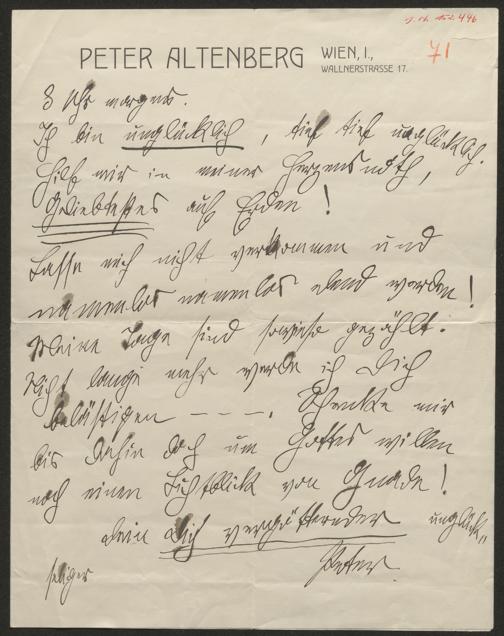 71
PETER ALTENBERG WIEN, I.,
WALLNERSTRASSE 17.
3 Uhr morgens.
Ich bin unglücklich, tief tief unglücklich.
Hilf mir in meiner Herzensnoth,
Geliebtestes auf Erden!
Lasse mich nicht verkommen und
namenlos namenlos elend werden!
Meine Tage sind sowieso gezählt.
Nicht lange mehr werde ich Dich
belästigen — — —. Schenke mir
bis dahin doch um Gottes willen
noch einen Lichtblick von Gnade!
Dein Dich vergötternder unglück„
seliger
Peter.